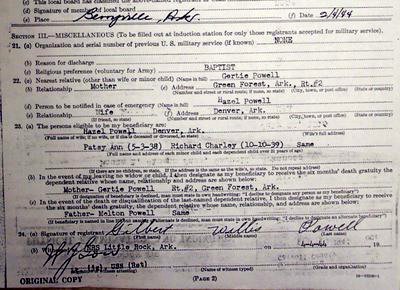 (d) Signature of member of local board
(e) Place Berryville, Ark. (f) Date 2/9/44
SECTION III.—MISCELLANEOUS (To be filled out at induction station for only those registrants accepted for military service).
21. (a) Organization and serial number of previous U. S. military service (if known) NONE
(b) Reason for discharge
(c) Religious preference (voluntary for Army) BAPTIST
22. (a) Nearest relative (other than wife or minor child) (Name in full) Gertie Powell
(b) Relationship Mother (c) Address Green Forest, Ark., Rt.#2
(If friend, so state) (Number and street or rural route; if none, so state) (City, town, or post office) (State or country)
(d) Person to be notified in case of emergency (Name in full) Hazel Powell
(e) Relationship Wife (f) Address Denver, Ark.
(If friend, so state) (Number and street or rural route; if none, so state) (City, town, or post office) (State or country)
23. (a) The persons eligible to be my beneficiary are:
Hazel Powell Denver, Ark.
(Full name of wife; if no wife, or if she is divorced or deceased, so state) Wife's full address
Patsy Ann (5-3-38) Richard Charley (10-10-39) Same
(Full name and address of each minor child and each dependent child over 21 years of age)
(If there be no children, so state. If the address is the same as the wife's, so state. Do not repeat address)
(b) In the event of my leaving no widow or child, I then designate as my beneficiary to receive the six months' death gratuity the
dependent relative whose name, relationship and address are shown below:
Mother- Gertie Powell Rt.#2, Green Forest, Ark.
(c) In the event of the death or disqualification of the last-named dependent relative, I then designate as my beneficiary to receive
the six months' death gratuity, the dependent relative whose name, relationship, and address are shown below:
Father- Melton Powell Same
24. (a) Signature of registrant Gilbert Willis Powell
(First name) (Middle name) (Last name)
(b) NRS Little Rock, Ark. 4-4-44 19
(jg) USN (Ret)
(Name of witness typed) (Grade and organization)
ORIGINAL COPY (PAGE 2)